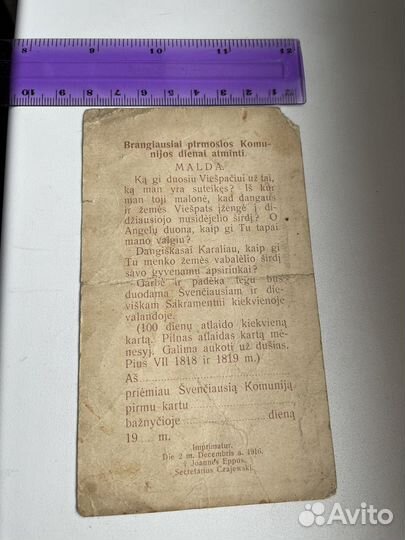 8 9 10 11 12
10 9 8 7 6 5 4 3 2 1 0
Brangiausiai pirmosios Komu-
nijos dienai atminti.
MALDA.
Ką gi duosiu Viešpačiui už tai,
ką man yra suteikęs? Iš kur
man toji malonė, kad dangaus
ir žemės Viešpats įžengė į di-
džiausiojo nusidėjelio širdį? O
Angelų duona, kaip gi Tu tapai
mano valgiu?
Dangiškasai Karaliau, kaip gi
Tu menko žemės vabalėlio širdį
savo gyvenamu apsirinkai?
Garbė ir padėka tegu bus
duodama Švenčiausiam ir die-
viškam Sakramentui kiekvienoje
valandoje.
(100 dienų atlaido kiekvieną
kartą. Pilnas atlaidas kartą mė-
nesyj. Galima aukoti už dušias.
Pius VII 1818 ir 1819 m.)
Aš
priėmiau Švenčiausią Komuniją
pirmu kartu
bažnyčioje dieną
19 m.
Imprimatur.
Die 2 m. Decembris a. 1916.
Joannes Eppus.
Secretarius Czajewski.
Avito